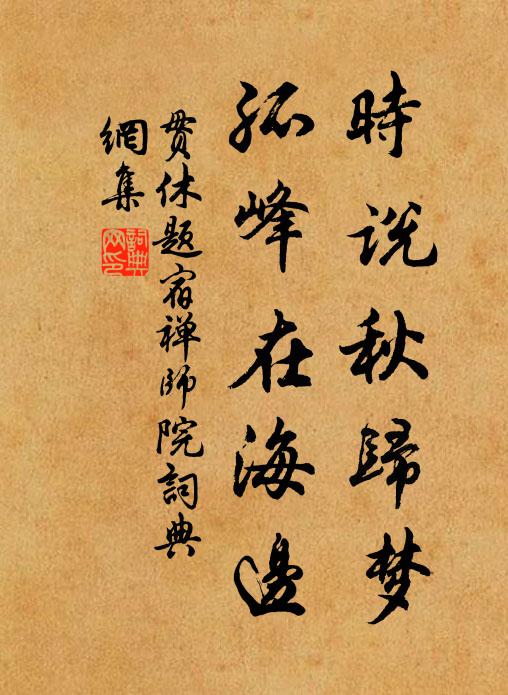 時説秋歸梦
孤峰在海邊
贯休题宿禅師院詞典
網集
詞典
网印